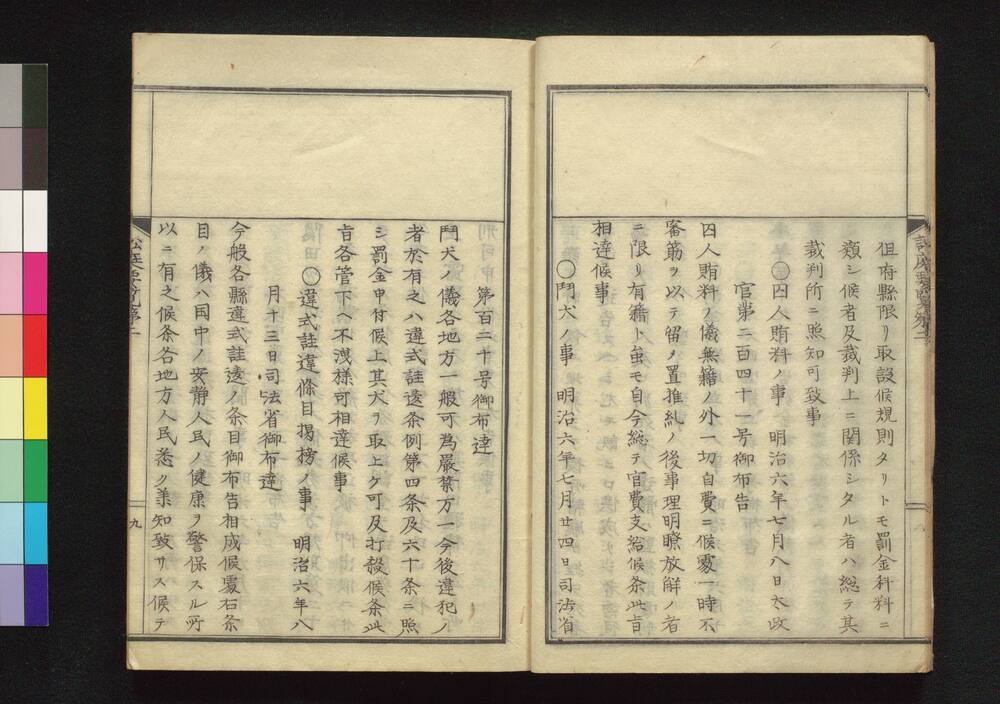 但府縣限リ取設候規則タリトモ罰金科料ニ
類シ候者及裁判上ニ関係シタル者ハ総テ其
裁判所ニ照知可致事
〇囚人賄料ノ事 明治六年七月八日太政
官第二百四十一号御布告
囚人賄料ノ儀無籍ノ外一切自費ニ候處一時不
審筋ヲ以テ留メ置推糺ノ後事理明瞭放解ノ者
ニ限リ有籍ト虽モ自今総テ官費支給候条此旨
相達候事
〇鬥犬ノ事 明治六年七月廿四日司法省
第百二十号御布達
鬥犬ノ儀各地方一般可為嚴禁万一今後違犯ノ
者於有之ハ違式詿違条例第四条及六十条ニ照
シ罰金申付候上其犬ヲ取上ケ可及打殺候条此
旨各管下ヘ不洩様可相達候事
〇違式詿違條目掲榜ノ事 明治六年八
月十三日司法省御布達
今般各縣違式詿違ノ条目御布告相成候處右条
目ノ儀ハ国中ノ安静人民ノ健康ヲ警保スル所
以ニ有之候条各地方人民悉ク兼知致サス候テ
九